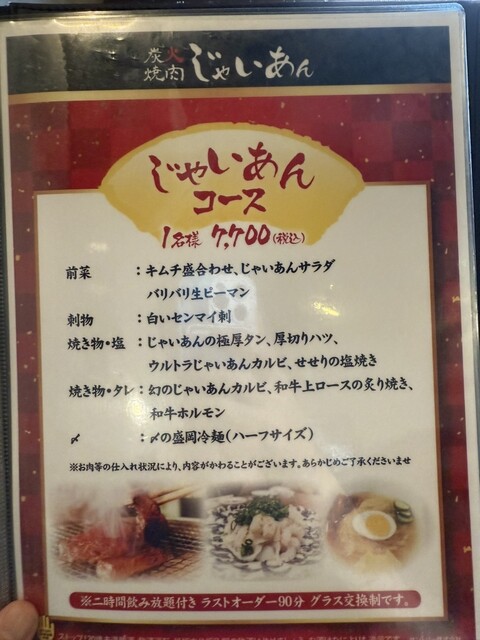 炭火
焼肉 じゃいあん
じゃいあん
コース
1名様 7,700(税込)
前菜 :キムチ盛合わせ、じゃいあんサラダ
バリバリ生ピーマン
刺物 :白いセンマイ刺
焼き物・塩 :じゃいあんの極厚タン、厚切りハツ、
ウルトラじゃいあんカルビ、せせりの塩焼き
焼き物・タレ:幻のじゃいあんカルビ、和牛上ロースの炙り焼き、
和牛ホルモン
〆 :〆の盛岡冷麺(ハーフサイズ)
※お肉等の仕入れ状況により、内容がかわることがございます。あらかじめご了承くださいませ
※二時間飲み放題付き ラストオーダー90分 グラス交換制です。